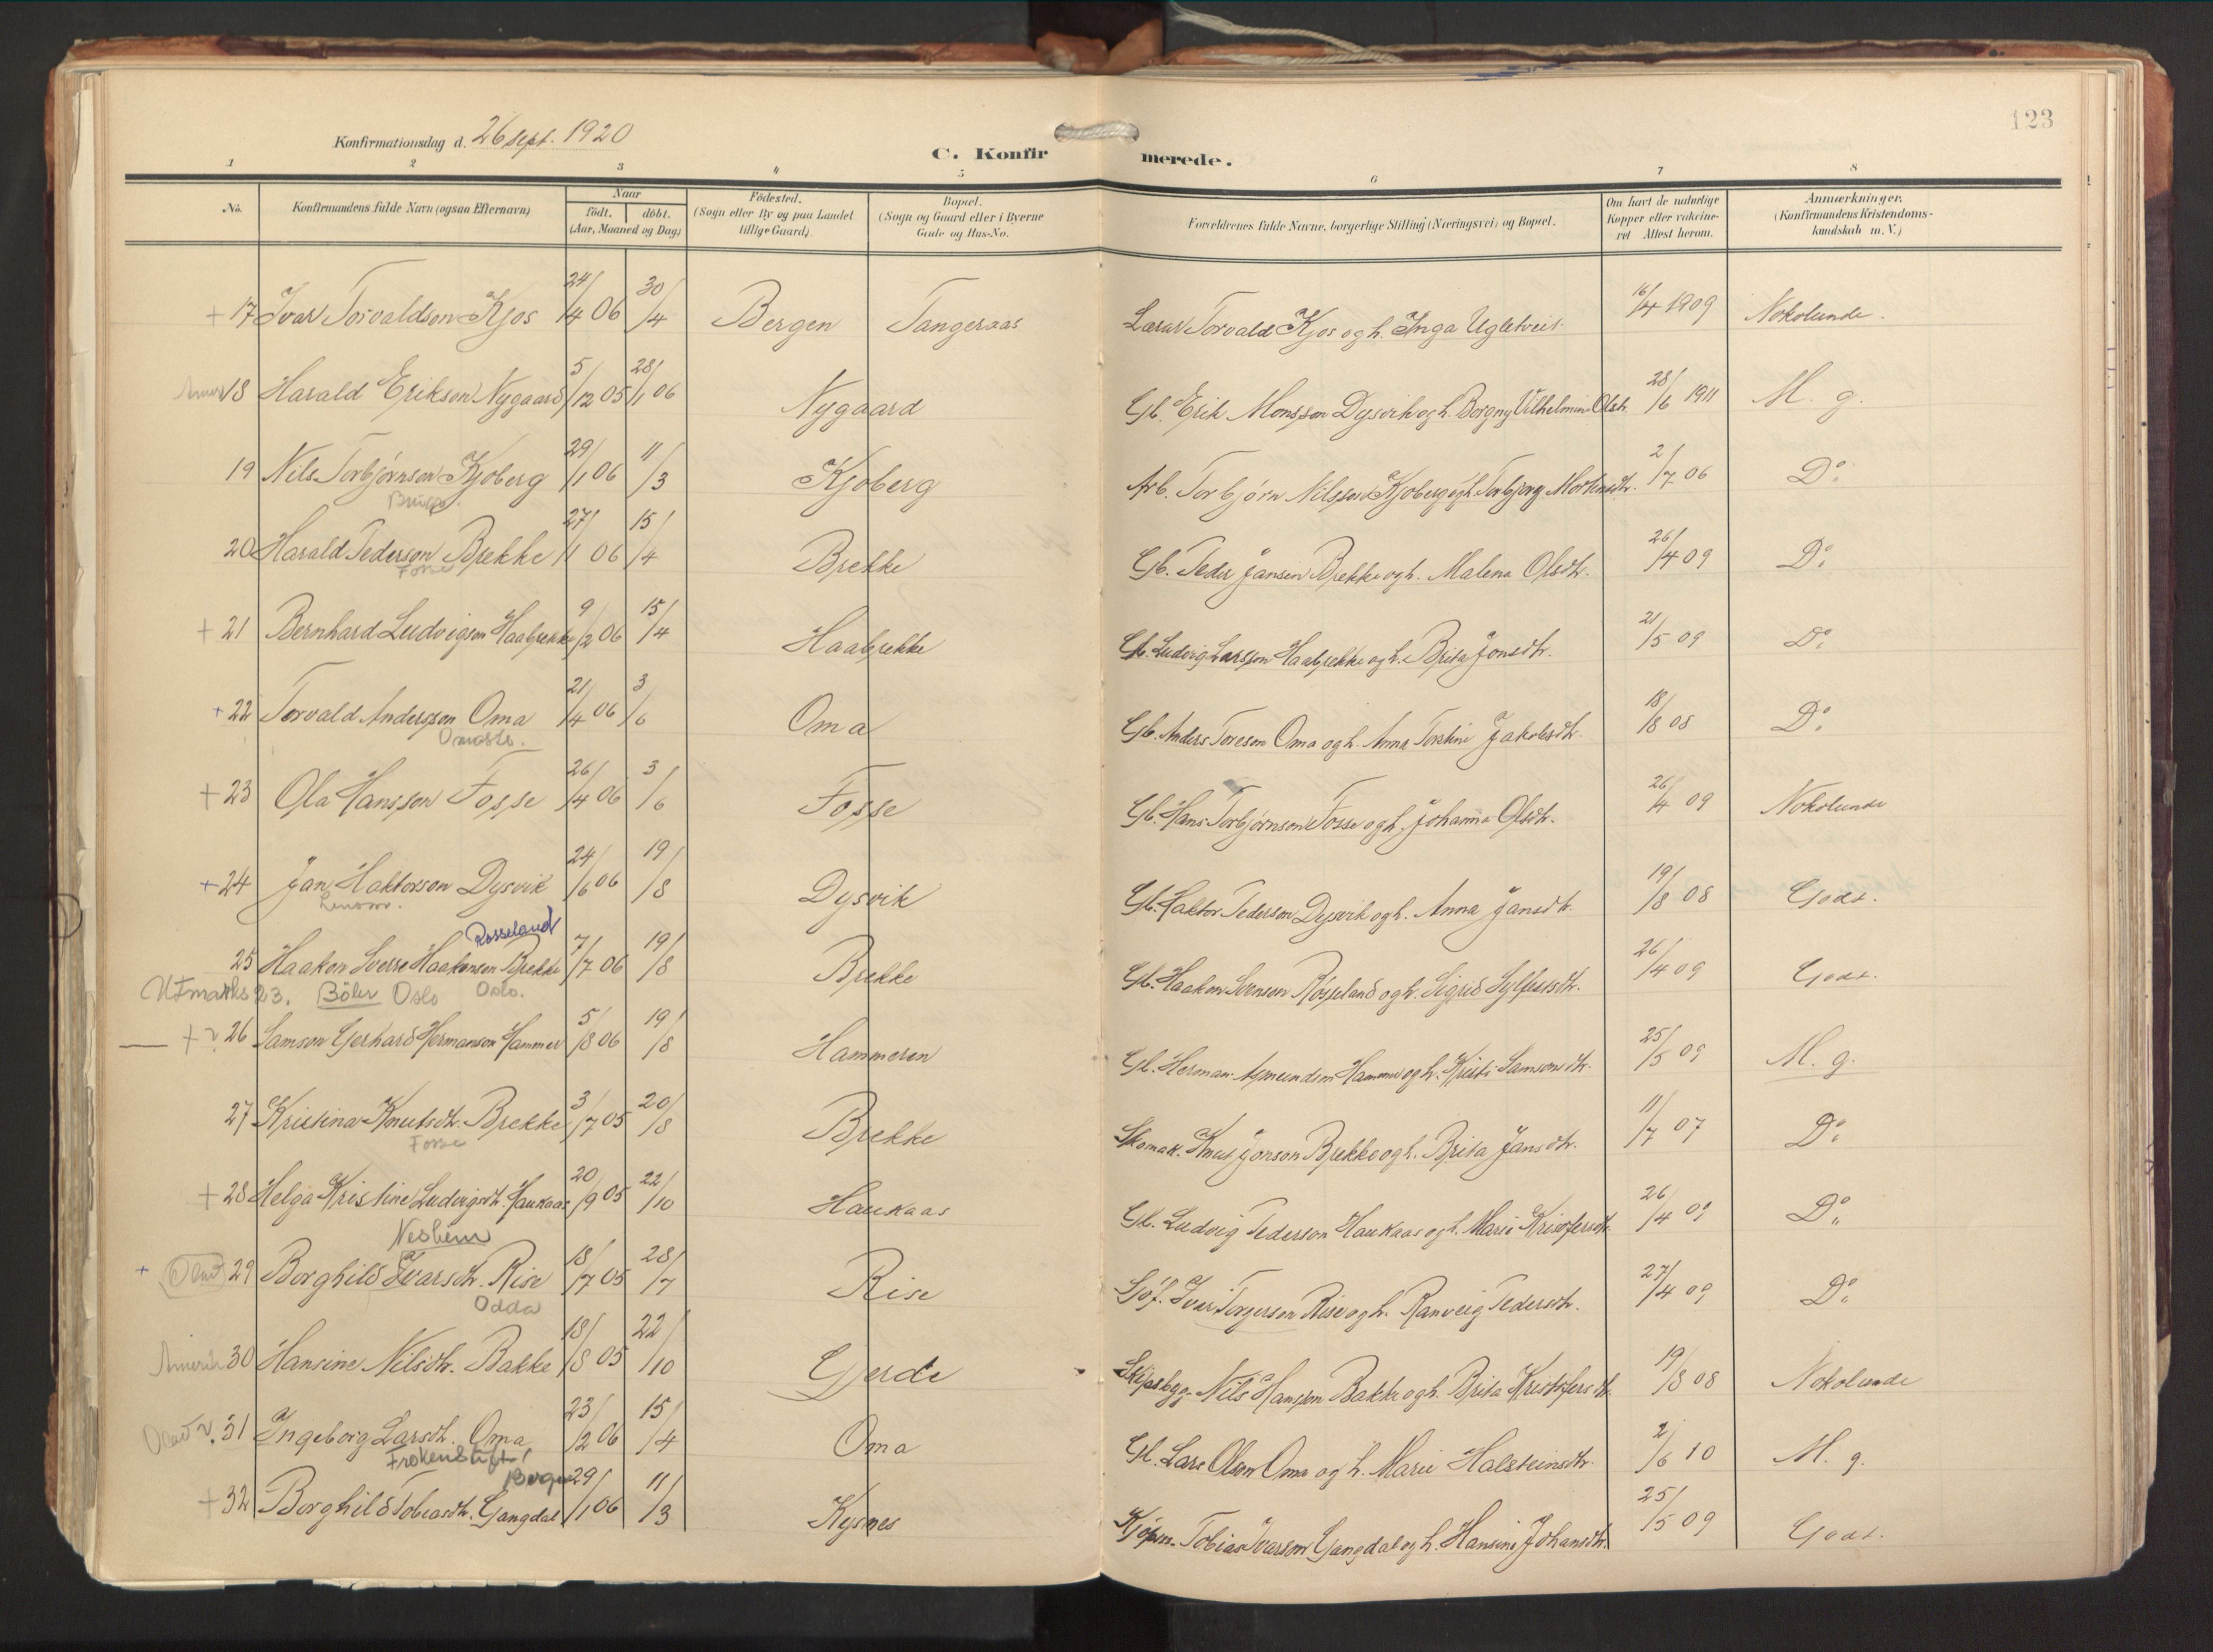 123
Konfirmationsdag d. 26 sept. 1920
C. Konfirmerede.
1 2 3 4 5 6 7 8
No. Konfirmandens fulde Navn (ogsaa Efternavn) Naar födt. döbt. (Aar, Maaned og Dag) Födested. (Sogn eller By og paa Landet tillige Gaard) Bopæl. (Sogn og Gaard eller i Byerne Gade og Hus-No. Forældrenes fulde Navne, borgerlige Stilling (Næringsvei) og Bopæl. Om havt de naturlige Kopper eller vakcineret Attest herom. Anmærkninger. (Konfirmandens Kristendomskundskab m. V.)
+ 17 Ivar Torvaldson Kjos 24/4 06 30/4 Bergen Tangeraas Lærar Torvald Kjos og h. Inga Ugletveit 16/4 1909 Nokolunde.
18 Harald Erikson Nygaard 5/12 05 28/1 06 Nygaard Gb. Erik Monsson Dysvik og h. Borgny Vilhelmine Olsdtr. 28/6 1911 M. g.
19 Nils Torbjørnson Kjoberg 29/1 06 11/3 Kjoberg Arb. Torbjørn Nilsson Kjoberg og h. Torbjørg Mortensdtr. 2/7 06 Do.
20 Harald Pederson Brekke 27/1 06 15/4 Brekke Gb. Peder Jansen Brekke og h. Malena Olsdtr. 26/4 09 Do.
Fosse
+ 21 Bernhard Ludvigson Haabrekke 9/2 06 15/4 Haabrekke Gb. Ludvig Larsson Haabrekke og h. Brita Jonsdtr. 21/5 09 Do.
+ 22 Torvald Andersson Oma 21/4 06 3/6 Oma Gb. Anders Toreson Oma og h. Anna Torkine Jakobsdtr. 18/8 08 Do.
Omastr.
+ 23 Ola Hansson Fosse 26/4 06 3/6 Fosse Gb. Hans Torbjørnson Fosse og h. Johanna Olsdtr. 26/4 09 Nokolunde
+ 24 Jan Haktorson Dysvik 24/6 06 19/8 Dysvik Gb. Haktor Pederson Dysvik og h. Anna Jansdtr. 19/8 08 Godt.
Rosseland
25 Haakon Sverre Haakonson Brekke 7/7 06 19/8 Brekke Gb. Haakon Svenson Røsseland og h. Sigrid Sylfestsdtr. 26/4 09 Godt.
Utmarks 23. Böler Oslo Oslo.
+ 26 Samson Gerhard Hermanson Hammer 5/8 06 19/8 Hammeren Gb. Herman Asmundson Hammer og h. Kristi Samsonsdtr. 25/5 09 M. g.
27 Kristina Knutsdtr. Brekke 3/7 05 20/8 Brekke Skomak. Knut Jonson Brekke og h. Brita Jansdtr. 11/7 07 Do.
Fosse
+ 28 Helga Kristine Ludvigsdtr. Haukaas 20/9 05 22/10 Haukaas Gb. Ludvig Pederson Haukaas og h. Marie Kristofersdtr. 26/4 09 Do.
Nesheim
+ 29 Borghild Ivarsdtr. Rise 18/7 05 28/7 Rise Sjöf. Iver Torgerson Rise og h. Ranveig Pedersdtr. 27/4 09 Do.
Odda
Amerik 30 Hansine Nilsdtr. Bakke 18/8 05 22/10 Gjerde Skipsbyg. Nils Hansson Bakke og h. Brita Kristofersdtr. 19/8 08 Nokolunde
31 Ingeborg Larsdtr. Oma 23/2 06 15/4 Oma Gb. Lars Olson Oma og h. Marie Halsteinsdtr. 2/6 10 M. g.
Frøkenstift, Bergen
+ 32 Borghild Tobiasdtr. Gangdal 29/1 06 11/3 Kysnes Kjöpm. Tobias Ivarson Gangdal og h. Hansine Johansdtr. 25/5 09 Godt.